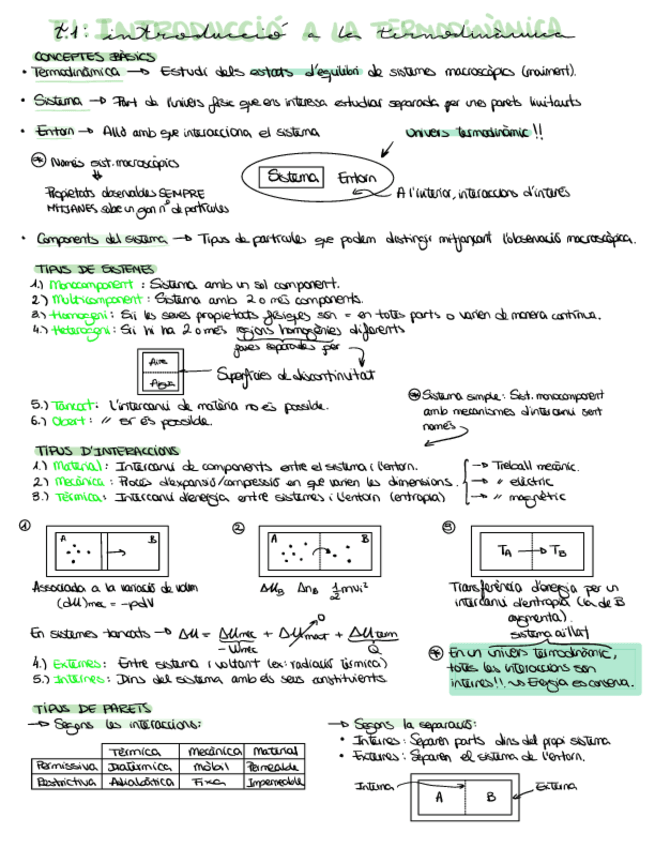 T.1: INTRODUCCIÓ A LA TERMODINÀMICA
t.1: introducció a la termodinàmica
CONCEPTES BÀSICS
• Termodinàmica → Estudi dels estats d'equilibri de sistemes macroscòpics (moviment).
• Sistema → Part de l'univers físic que ens interessa estudiar separada per unes parets limitants
• Entorn → Allò amb que interacciona el sistema
Univers termodinàmic!!
* Només sist. macroscòpics
Propietats observables SEMPRE
MITJANES sobre un gran nº de partícules
Sistema Entorn
A l'interior, interaccions d'interès
• Components del sistema → Tipus de partícules que podem distingir mitjançant l'observació macroscòpica.
TIPUS DE SISTEMES
1.) Monocomponent: Sistema amb un sol component.
2.) Multicomponent: Sistema amb 2 o més components.
3.) Homogeni: Si les seves propietats físiques són = en totes parts o varien de manera contínua.
4.) Heterogeni: Si hi ha 2 o més regions homogènies diferents
fases separades per
Aire
Aigua
Superfícies de discontinuitat
5.) Tancat: L'intercanvi de matèria no és possible.
6.) Obert: // sí és possible.
* Sistema simple: Sist. monocomponent
amb mecanismes d'intercanvi sent
només
TIPUS D'INTERACCIONS
1.) Material: Intercanvi de components entre el sistema i l'entorn.
2.) Mecànica: Procés d'expansió/compressió en què varien les dimensions.
3.) Tèrmica: Intercanvi d'energia entre sistemes i l'entorn (entropia)
→ Treball mecànic.
→ " elèctric
→ " magnètric
1 A B
2 A B
3 TA → TB
Associada a la variació de volum
(dU)mec = -pdV
ΔUB ΔnB 1/2 mvi²
Transferència d'energia per un
intercanvi d'entropia (la de B
augmenta).
En sistemes tancats → ΔU = ΔUmec + ΔUmat + ΔUterm
0
-Wmec Q
sistema aïllat
* En un univers termodinàmic,
totes les interaccions són
internes!! → Energia es conserva.
4.) Externes: Entre sistema i voltant (ex: radiació tèrmica)
5.) Internes: Dins del sistema amb els seus constituents.
TIPUS DE PARETS
→ Segons les interaccions:
Tèrmica Mecànica Material
Permissiva Diatèrmica mòbil Permeable
Restrictiva Adiabàtica Fixa Impermeable
→ Segons la separació:
• Internes: Separen parts dins del propi sistema
• Externes: Separen el sistema de l'entorn.
Interna A B Externa